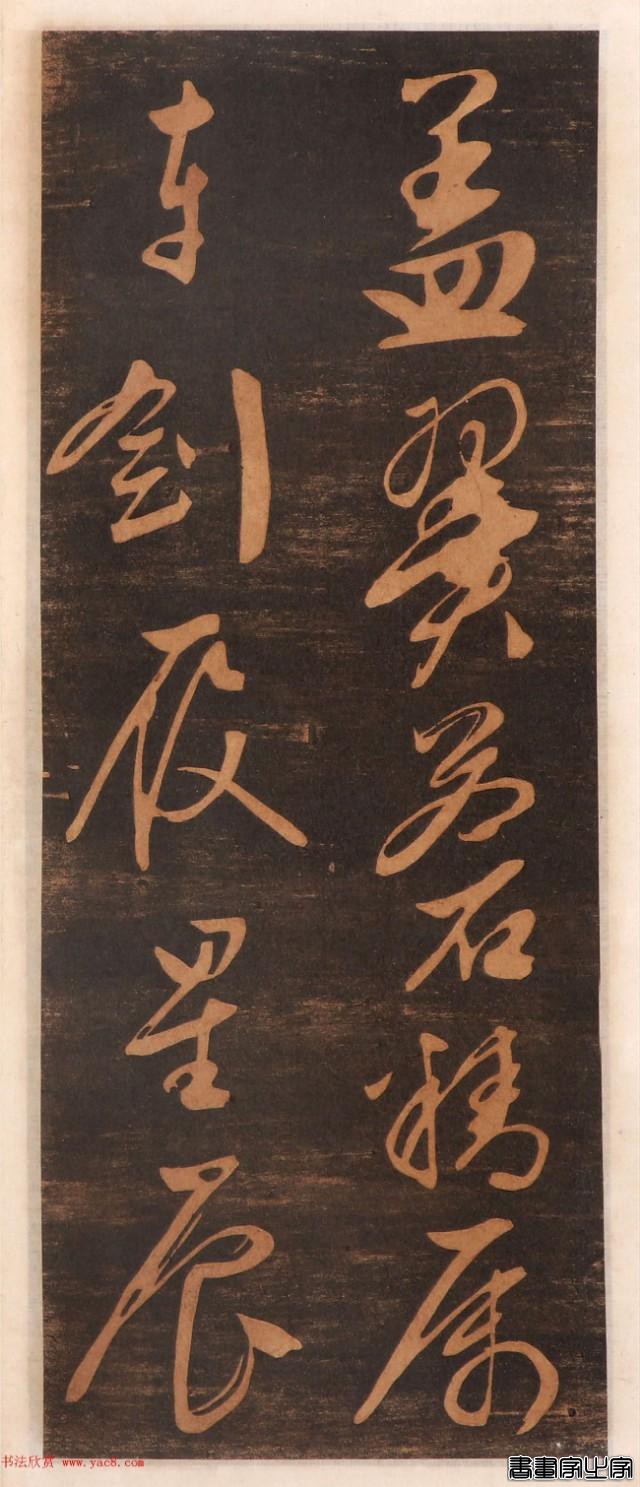 盖翼若石精
车剑履星辰
书法欣赏 www.yac8.com
書畫家之家